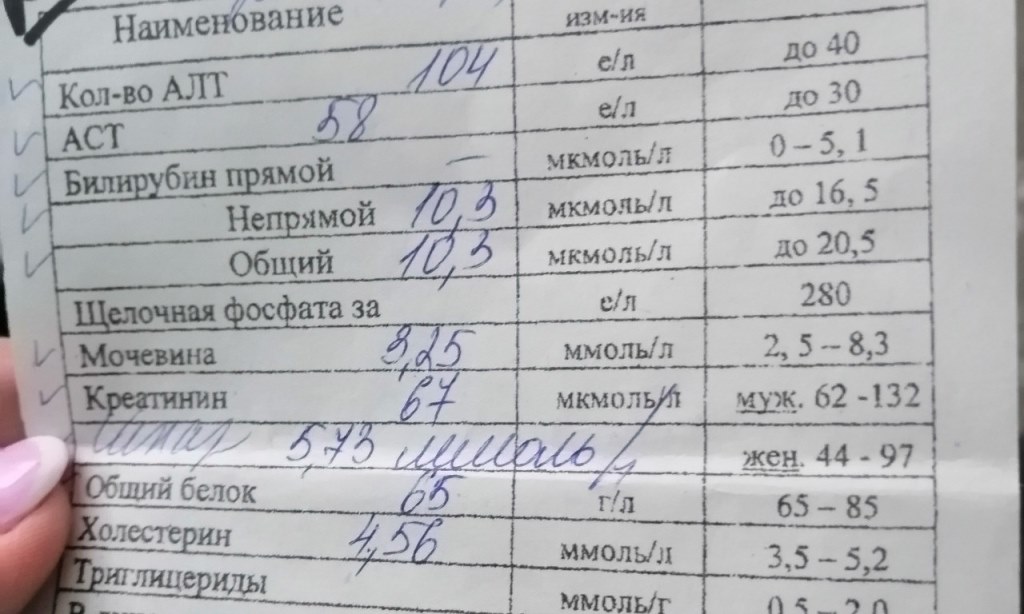 Наименование изм-ия
Кол-во АЛТ 104 е/л до 40
АСТ 58 е/л до 30
Билирубин прямой — мкмоль/л 0 – 5, 1
Непрямой 10,3 мкмоль/л до 16, 5
Общий 10,3 мкмоль/л до 20,5
Щелочная фосфата за е/л 280
Мочевина 3,25 ммоль/л 2, 5 – 8,3
Креатинин 67 мкмоль/л муж. 62 -132
Сахар 5,73 ммоль/л жен. 44 - 97
Общий белок 65 г/л 65 – 85
Холестерин 4,56 ммоль/л 3,5 – 5,2
Триглицериды ммоль/г 0,5 – 2,0